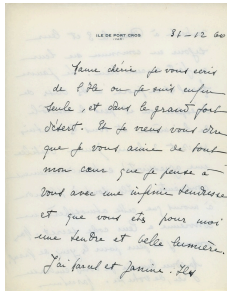 ILE DE PORT CROS
(VAR)
31-12 60
Mame chérie je vous écris
de l'Île où je suis enfin
seule, et dans le grand fort
désert. Et je veux vous dire
que je vous aime de tout
mon cœur que je pense à
vous avec une infinie tendresse
et que vous êtes pour moi
une tendre et belle lumière.
J'ai et Janine. Ils